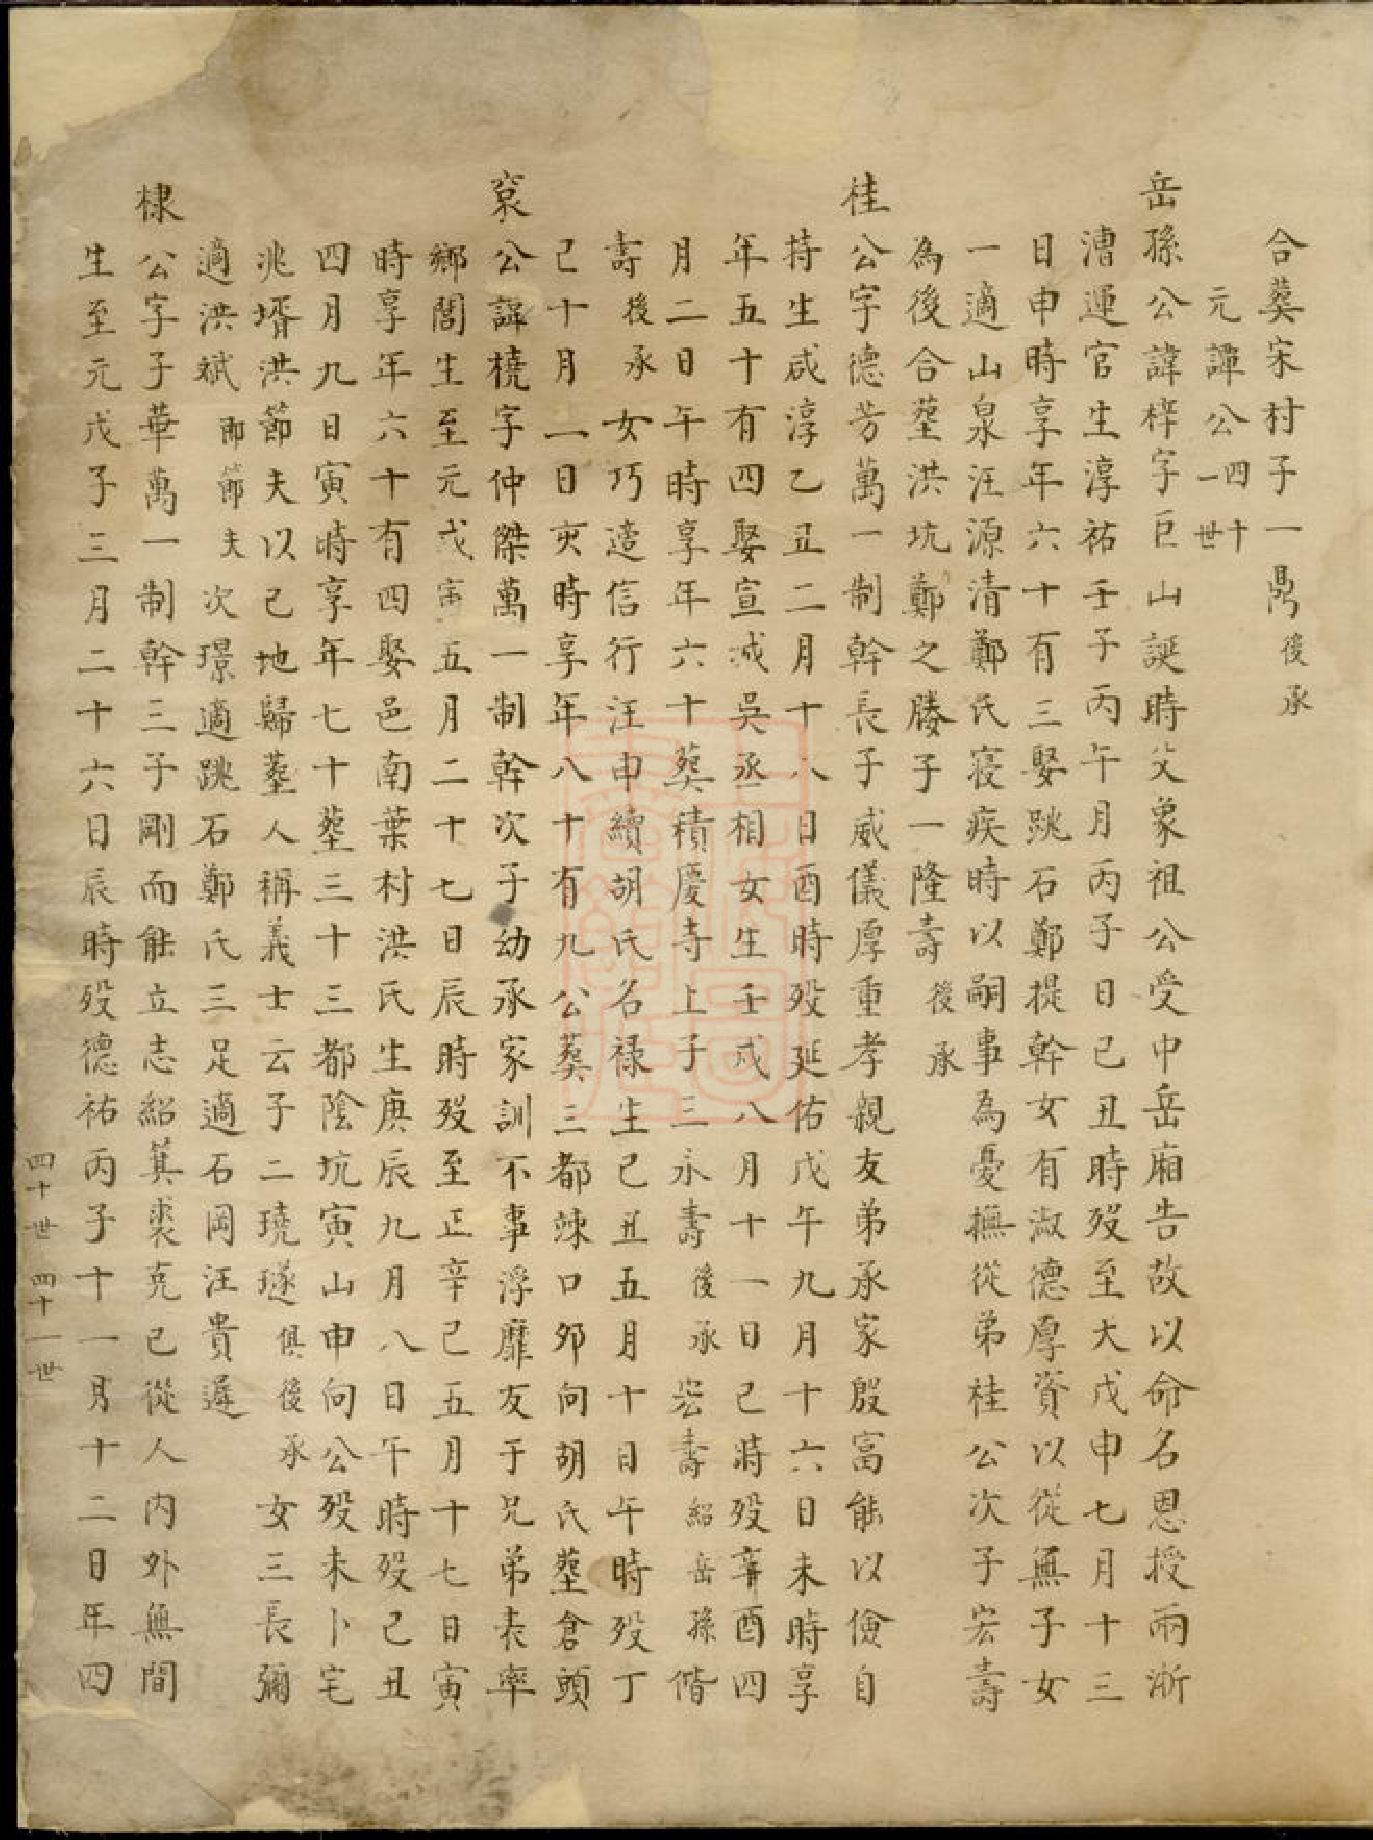 合葬宋村子一鼎後承
元譚公四十一世
岳孫公諱梓字巨山誕時父象祖公受中岳廟告故以命名恩授兩浙
漕運官生淳祐壬子丙午月丙子日己丑時歿至大戊申七月十三
日申時享年六十有三娶跳石鄭提幹女有淑德厚資以從無子女
一適山泉汪源清鄭氏寢疾時以嗣事為憂撫從弟桂公次子宏壽
為後合塟洪坑鄭之勝子一隆壽後承
桂公字德芳萬一制幹長子威儀厚重孝親友弟承家殷富能以儉自
持生咸淳乙丑二月十八日酉時歿延佑戊午九月十六日未時享
年五十有四娶宣城吳丞相女生壬戌八月十一日己時歿辛酉四
月二日午時享年六十葬積慶寺上子三永壽後承宏壽紹岳孫偕
壽後承女巧適信行汪申續胡氏名祿生己丑五月十日午時歿丁
己十月一日亥時享年八十有九公葬三都竦口夘向胡氏塟倉頭
寀公諱橈字仲傑萬一制幹次子幼承家訓不事浮靡友于兄弟表率
鄉閭生至元戊寅五月二十七日辰時歿至正辛己五月十七日寅
時享年六十有四娶邑南葉村洪氏生庚辰九月八日午時歿己丑
四月九日寅時享年七十塟三十三都陰坑寅山申向公歿未卜宅
兆壻洪節夫以己地歸塟人稱義士云子二璄璲俱後承女三長彌
適洪斌即節夫次璟適跳石鄭氏三足適石岡汪貴遲
棣公字子華萬一制幹三子剛而能立志紹箕裘克己從人內外無間
生至元戊子三月二十六日辰時歿德祐丙子十一月十二日年四
四十世 四十一世